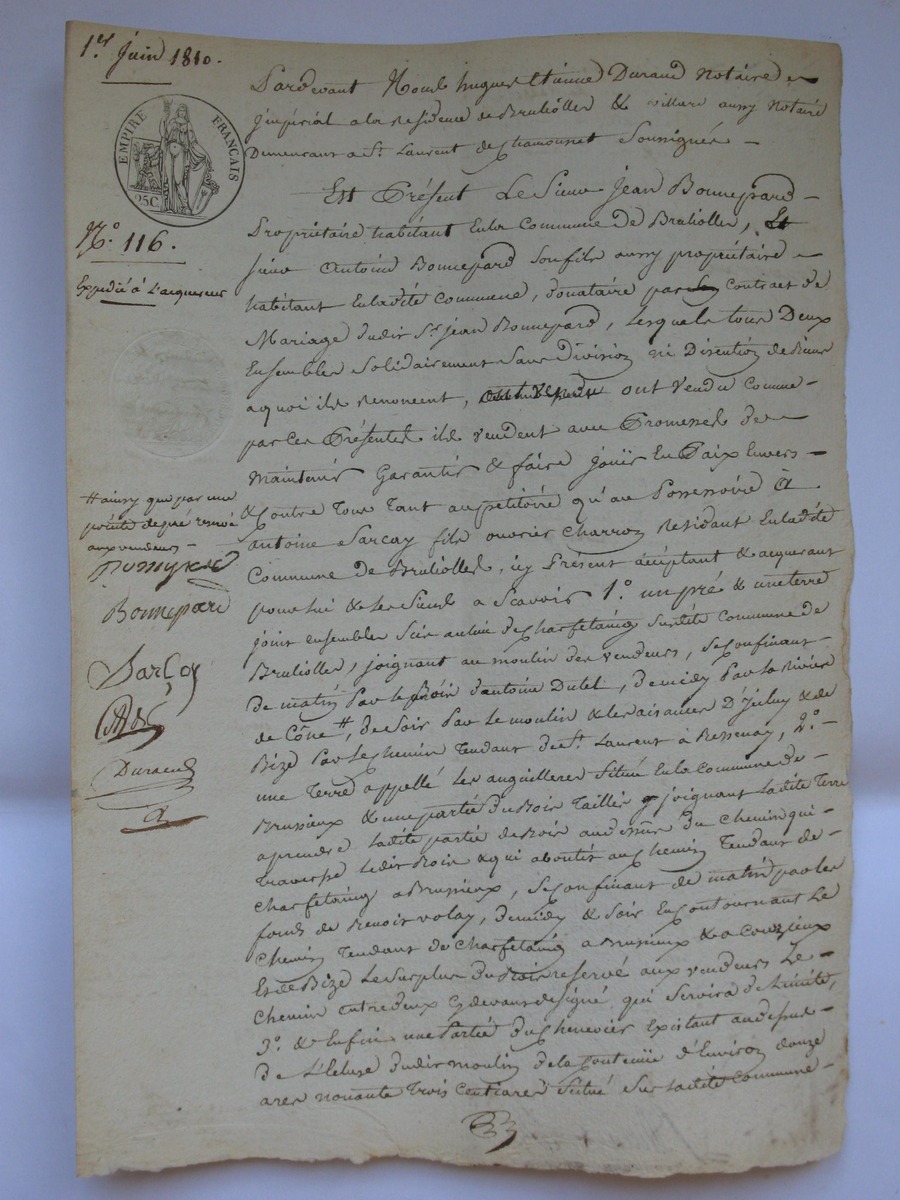 1.er Juin 1810.
EMPIRE FRANÇAIS
25C.
N.o 116.
Expedié à L'acquereur
Pardevant Nous hugues Etienne Durand Notaire
jmpérial a la Residence de Brullolles & villard aussy Notaire
Demeurant a St. Laurent de Chamousset Soussignés
Est Présent Le Sieur Jean Bonnepard
Propriétaire habitant En la Commune de Brullolles, Et
sieur Antoine Bonnepard son fils aussy propriétaire
habitant En ladite Commune, donataire par Contract de
Mariage dudit Sr. jean Bonnepard, Lesquels tous Deux
Ensembles Solidairement Sans Division ni Discution de Biens
a quoi ils Renoncent, ont Vendu Comme
par Ces Présentes ils vendent avec Promesse de
Maintenir Garantir & faire jouir En Paix Envers
& Contre Tous Tant au petitoire qu'au Possessoire à
antoine Sarcay fils ouvrier Charron Résidant En ladite
Commune de Brullolles, icy Présent acceptant & acquerant
pour lui & les Siens a Scavoir 1.o un pré & une terre
joints ensembles Sis au lieu de Charfetaing Susdite Commune de
Brullolles, joignant au moulin des vendeurs, Se Confinant
De matin Par le Bois d'antoine Dutel, de midy Par la Rivière
de Cône #, de Soir Par Le moulin & les aisances D'jcelui & de
Bize Par Le Chemin Tendant de St. Laurent à Bessenay, 2.o
une Terre appellé Les anguilleres Située En la Commune de
Brussieux & une partie du Bois Taillis joignant Ladite Terre
aprendre Ladite partie de Bois au dessus du Chemin qui
Traverse Ledit Bois & qui aboutit au Chemin Tendant de
Charfetaing a Brussieux, Se Confinant de matin par les
fonds de Benoit volay, de midy & Soir En Contournant Le
Chemin Tendant de Charfetaing a Brussieux & a Courzieux
Et de Bize Le Surplus du Bois reservé aux vendeurs Le
Chemin Entredeux Cydevant designé qui Servira de Limite,
3.o & Enfin une Partie du Chenevier Existant au dessus
De L'Ecluse dudit moulin de la Contenüe d'Environ douze
ares nonante Trois Centiares Situé Sur ladite Commune
# ainsy que par une
pointe de pré reservé
aux vendeurs
Bonnepard
Sarcay
Durand